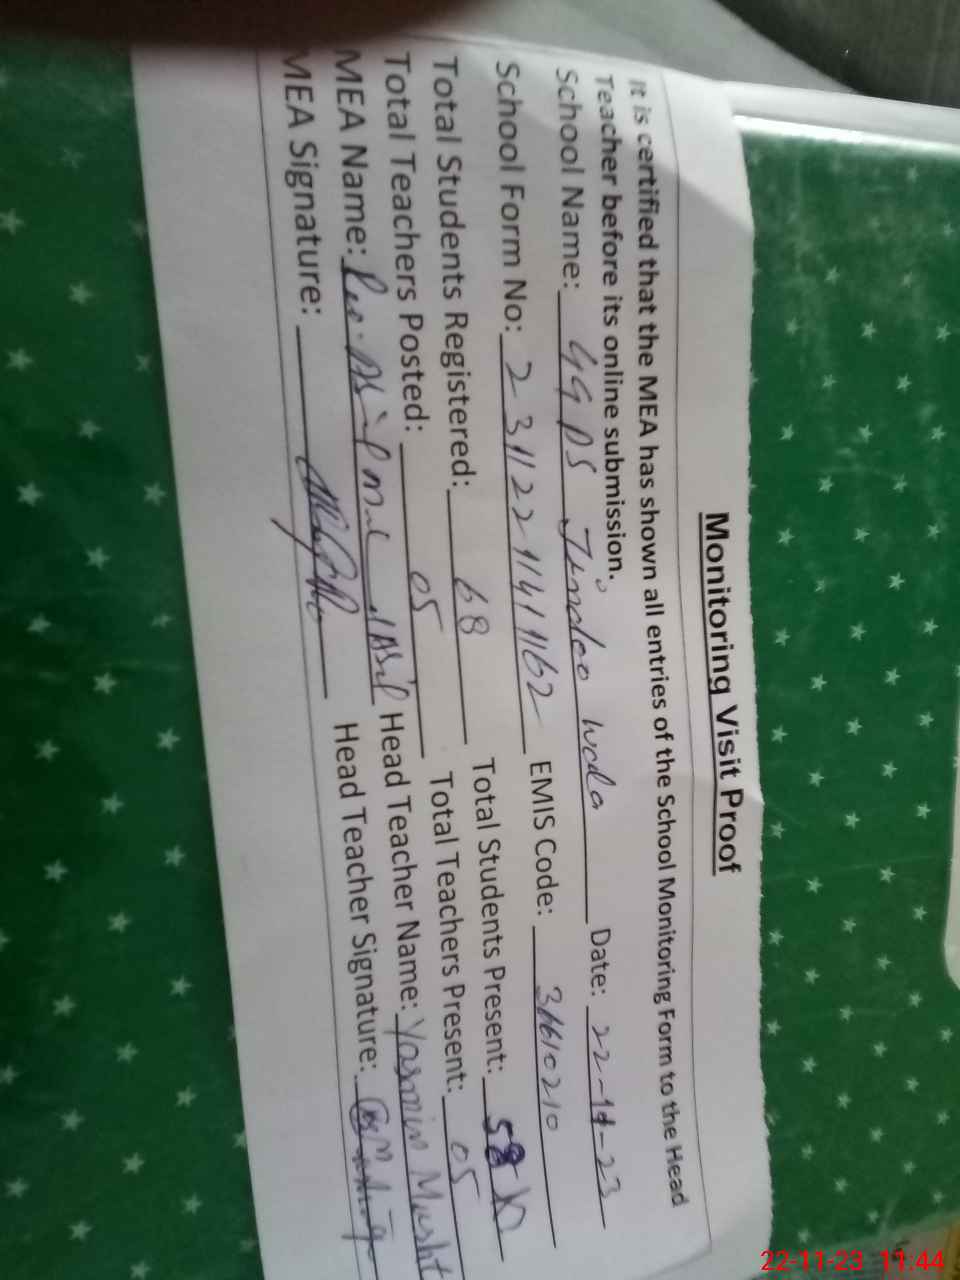 Monitoring Visit Proof
It is certified that the MEA has shown all entries of the School Monitoring Form to the Head
Teacher before its online submission.
School Name: GGPS Jindoo wada Date: 22-11-23
School Form No: 2311221141162 EMIS Code: 31610210
Total Students Registered: 68 Total Students Present: 58
Total Teachers Posted: 05 Total Teachers Present: 05
MEA Name: Asif Head Teacher Name: Yasmin Musht
MEA Signature: Head Teacher Signature:
22-11-23 11:44